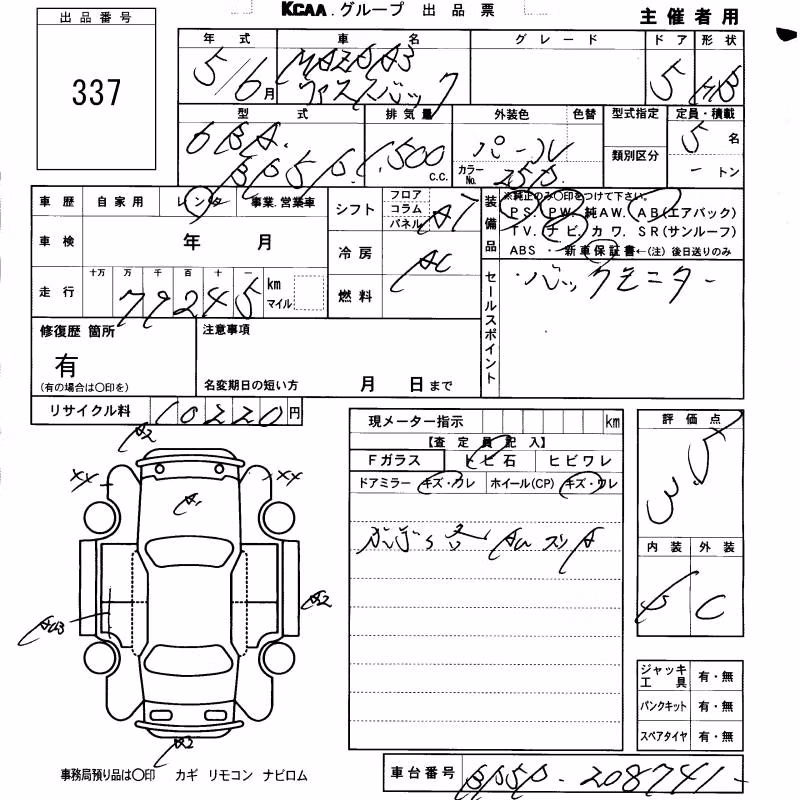 KCAA.グループ 出品票
主催者用
出品番号
337
年式 車名 グレード ドア 形状
5/6月 MAZDA3 ファストバック 5 HB
型式 排気量 外装色 色替 型式指定 定員・積載
6BA. BP5P 1,500 c.c. パール 類別区分 5 名
カラーNo. 25D ートン
車歴 自家用 レンタ 事業.営業車
シフト フロア コラム パネル AT
車検 年 月
冷房 AC
走行 十万 万 千 百 十 一
79245 km マイル
燃料
装備品 ※純正のみ〇印をつけて下さい。
PS. PW. 純AW. AB(エアバック)
TV. ナビ. カワ. SR(サンルーフ)
ABS ・新車保証書←(注) 後日送りのみ
セールスポイント
・バックモニター
修復歴 箇所
有
(有の場合は〇印を)
注意事項
名変期日の短い方 月 日まで
リサイクル料 10220円
現メーター指示 km
【査定員記入】
Fガラス トビ石 ヒビワレ
ドアミラー キズ・ワレ ホイール(CP) キズ・ワレ
評価点
3.5
内装 外装
C
A2
XX XX
A1
AU3
A2
A2
ジャッキ工具 有・無
パンクキット 有・無
スペアタイヤ 有・無
事務局預り品は〇印 カギ リモコン ナビロム
車台番号 BP5P-208741-